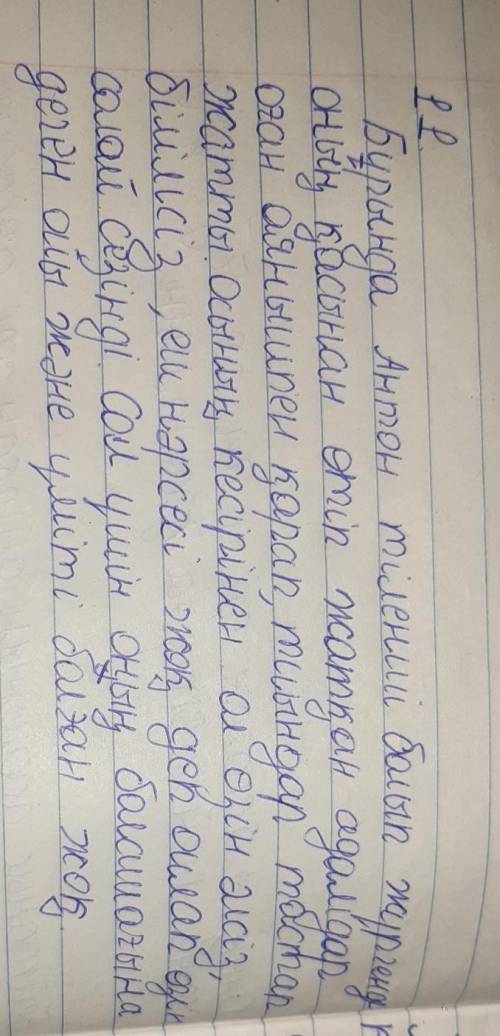 1 1.
Бұрында Антон тіленші болып жүргенде
оның қасынан өтіп жатқан адамдар
оған аянышпен қарап, тиындар тастап
жатты. осының кесірінен ол өзін әлсіз,
білімсіз, еш нәрсесі жоқ деп ойлап өзін
солай сезінді. Сол үшін оның болашағына
деген ойы және үміті болған жоқ.